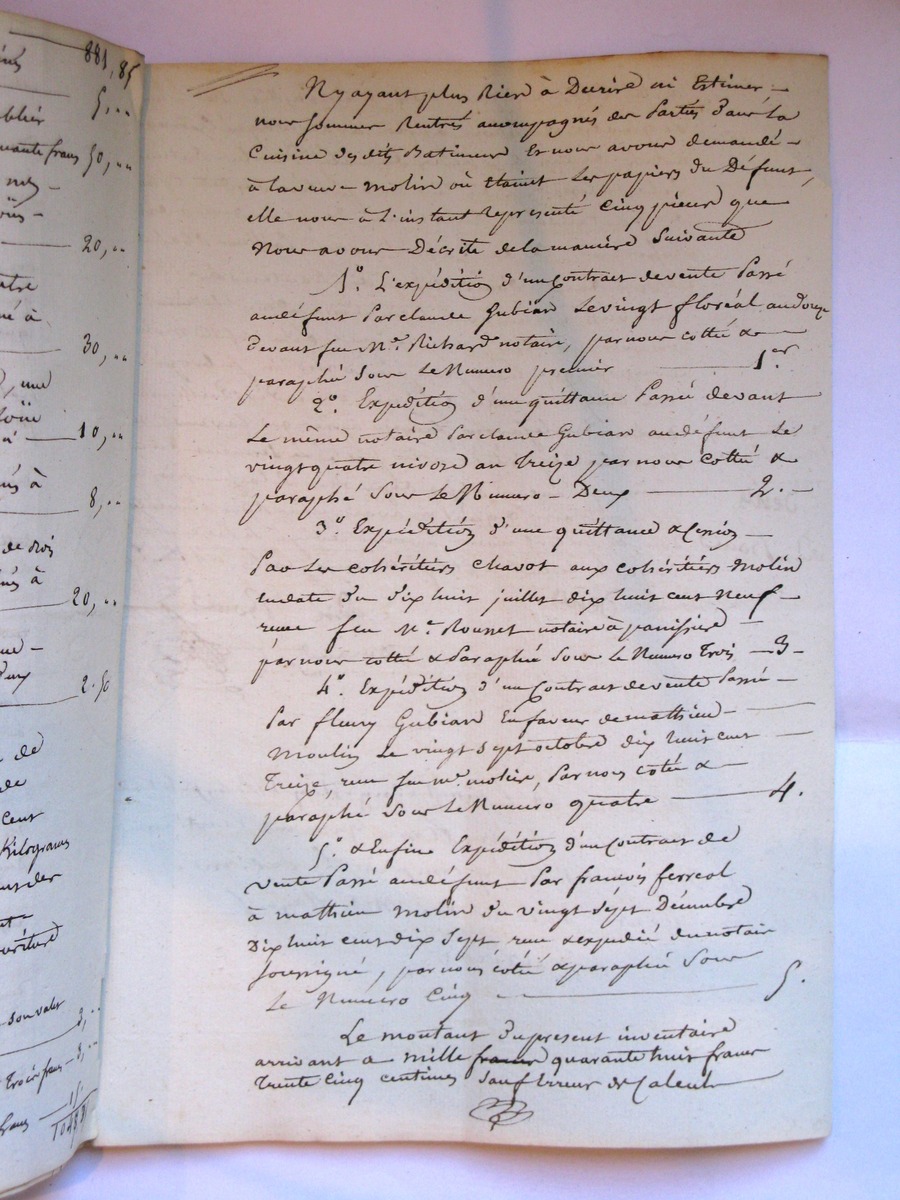 881,85
5,..
quante francs 50,..
20,..
à
30,..
une
10,..
à
8,..
de
à
20,..
2.50
de
de
Cent
Kilogrames
son valet
3,..
Trois francs 3,..
francs
N'y ayant plus Rien à Decrire ni Estimer
nous sommes Rentrés acompagnés des Parties dans la
Cuisine des dits Batimens Et nous avons demandé
à la veuve molin où Etaient Les papiers du Défunt,
elle nous à L'instant representé Cinq pieces que
Nous avons Décrite de la maniere Suivante
1º. L'expédition d'un Contract de vente Passé
au défunt Par claude Gubian Le vingt floréal an douze
devant feu Me. Richard notaire, par nous cotté &
paraphé sous Le Numero premier 1er
2º. Expédition d'une quittance Passé devant
Le même notaire Par claude Gubian au défunt Le
vingt quatre nivose an Treize par nous cotté &
paraphé sous Le Numero Deux 2.
3º Expédition d'une quittance & Cession
Par Les cohéritiers Chavot aux cohéritiers molin
en date du dix huit juillet dix huit cent Neuf
reçue feu Me. Rousset notaire à panissiere
par nous cotté & Paraphé sous le Numero Trois 3
4º. Expédition d'un Contract de vente Passé
Par fleury Gubian En faveur de mathieu
Moulin Le vingt sept octobre dix huit cent
Treize, reçu feu me molire, Par nous cotée &
paraphé sous Le Numero quatre 4.
5º. & Enfin Expédition d'un Contract de
vente Passé au défunt Par francois ferreol
à mathieu molin du vingt sept Décembre
Dix huit cent dix sept reçu & expedié du notaire
soussigné, par nous cotté & paraphé sous
Le Numero Cinq 5.
Le montant du present inventaire
arrivant a mille francs quarante huit francs
Trente Cinq centimes sauf Erreur de Calcul